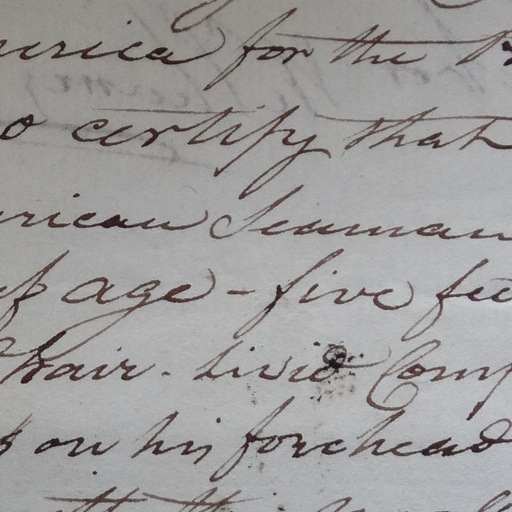 erica for the
o certify that
erican Seaman
of age - five fee
hair - livid Comp
on his forehead